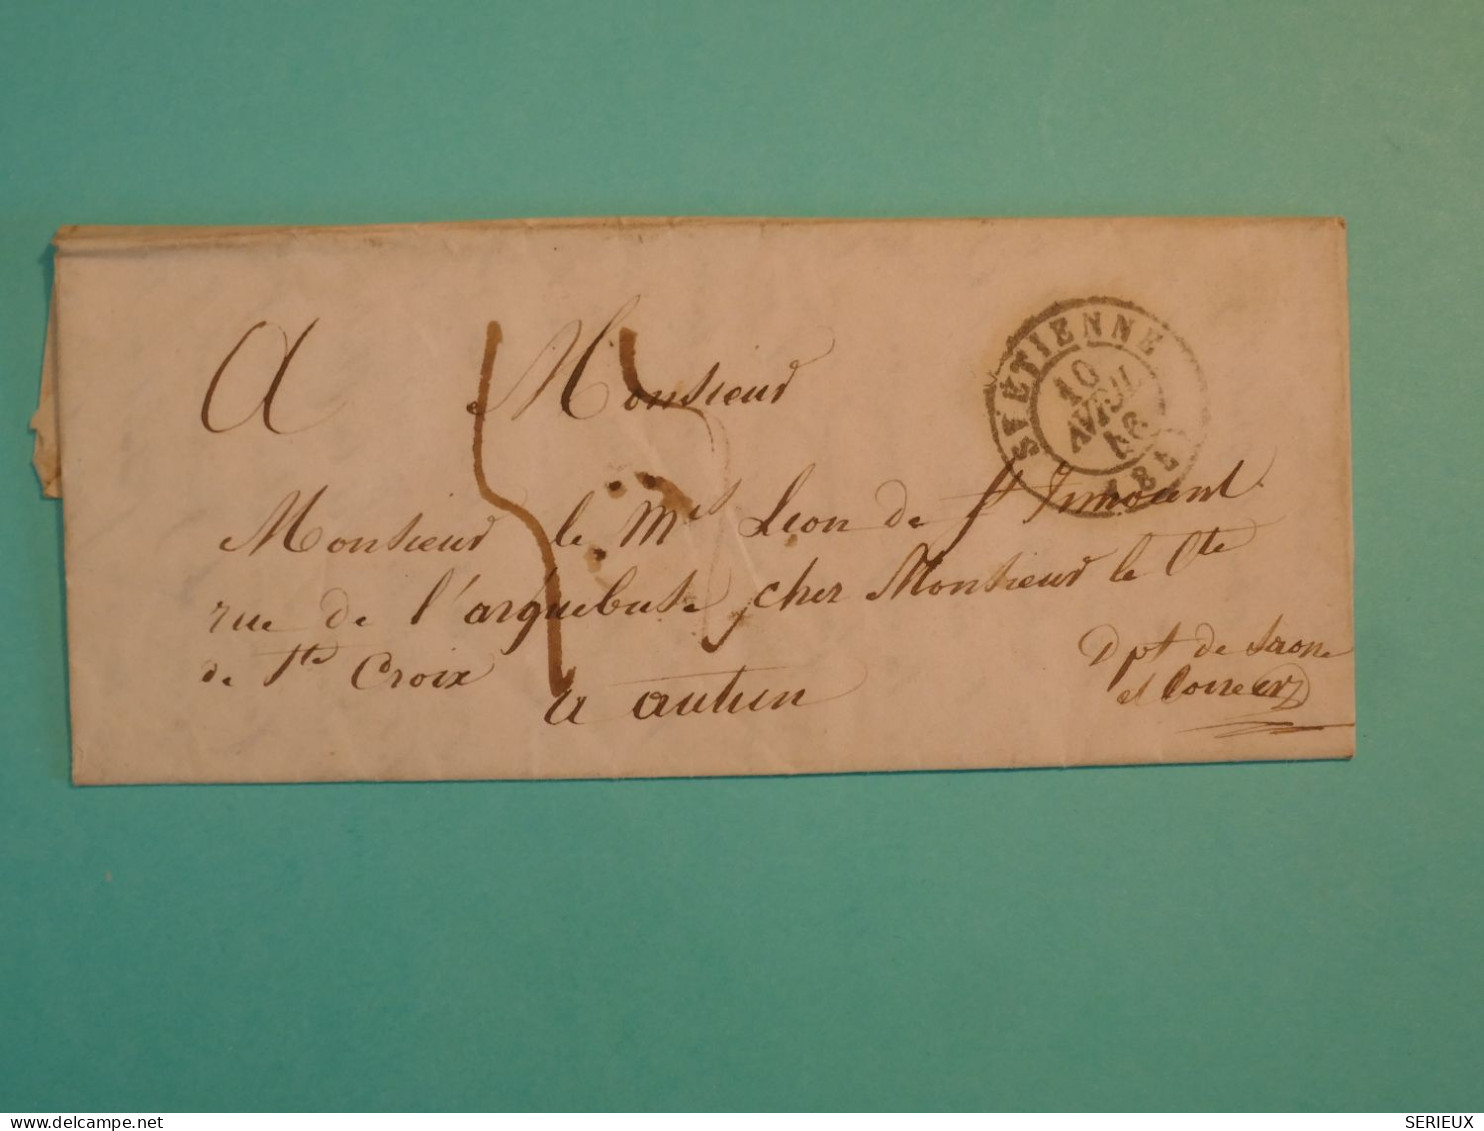 A Monsieur
ST ETIENNE
10
AVRIL
Monsieur le Mis Léon de St
rue de l'arquebuse, chez Monsieur le Cte
de Ste Croix
à autun
Dpt de Saone
et Loire
delcampe.net
SERIEUX